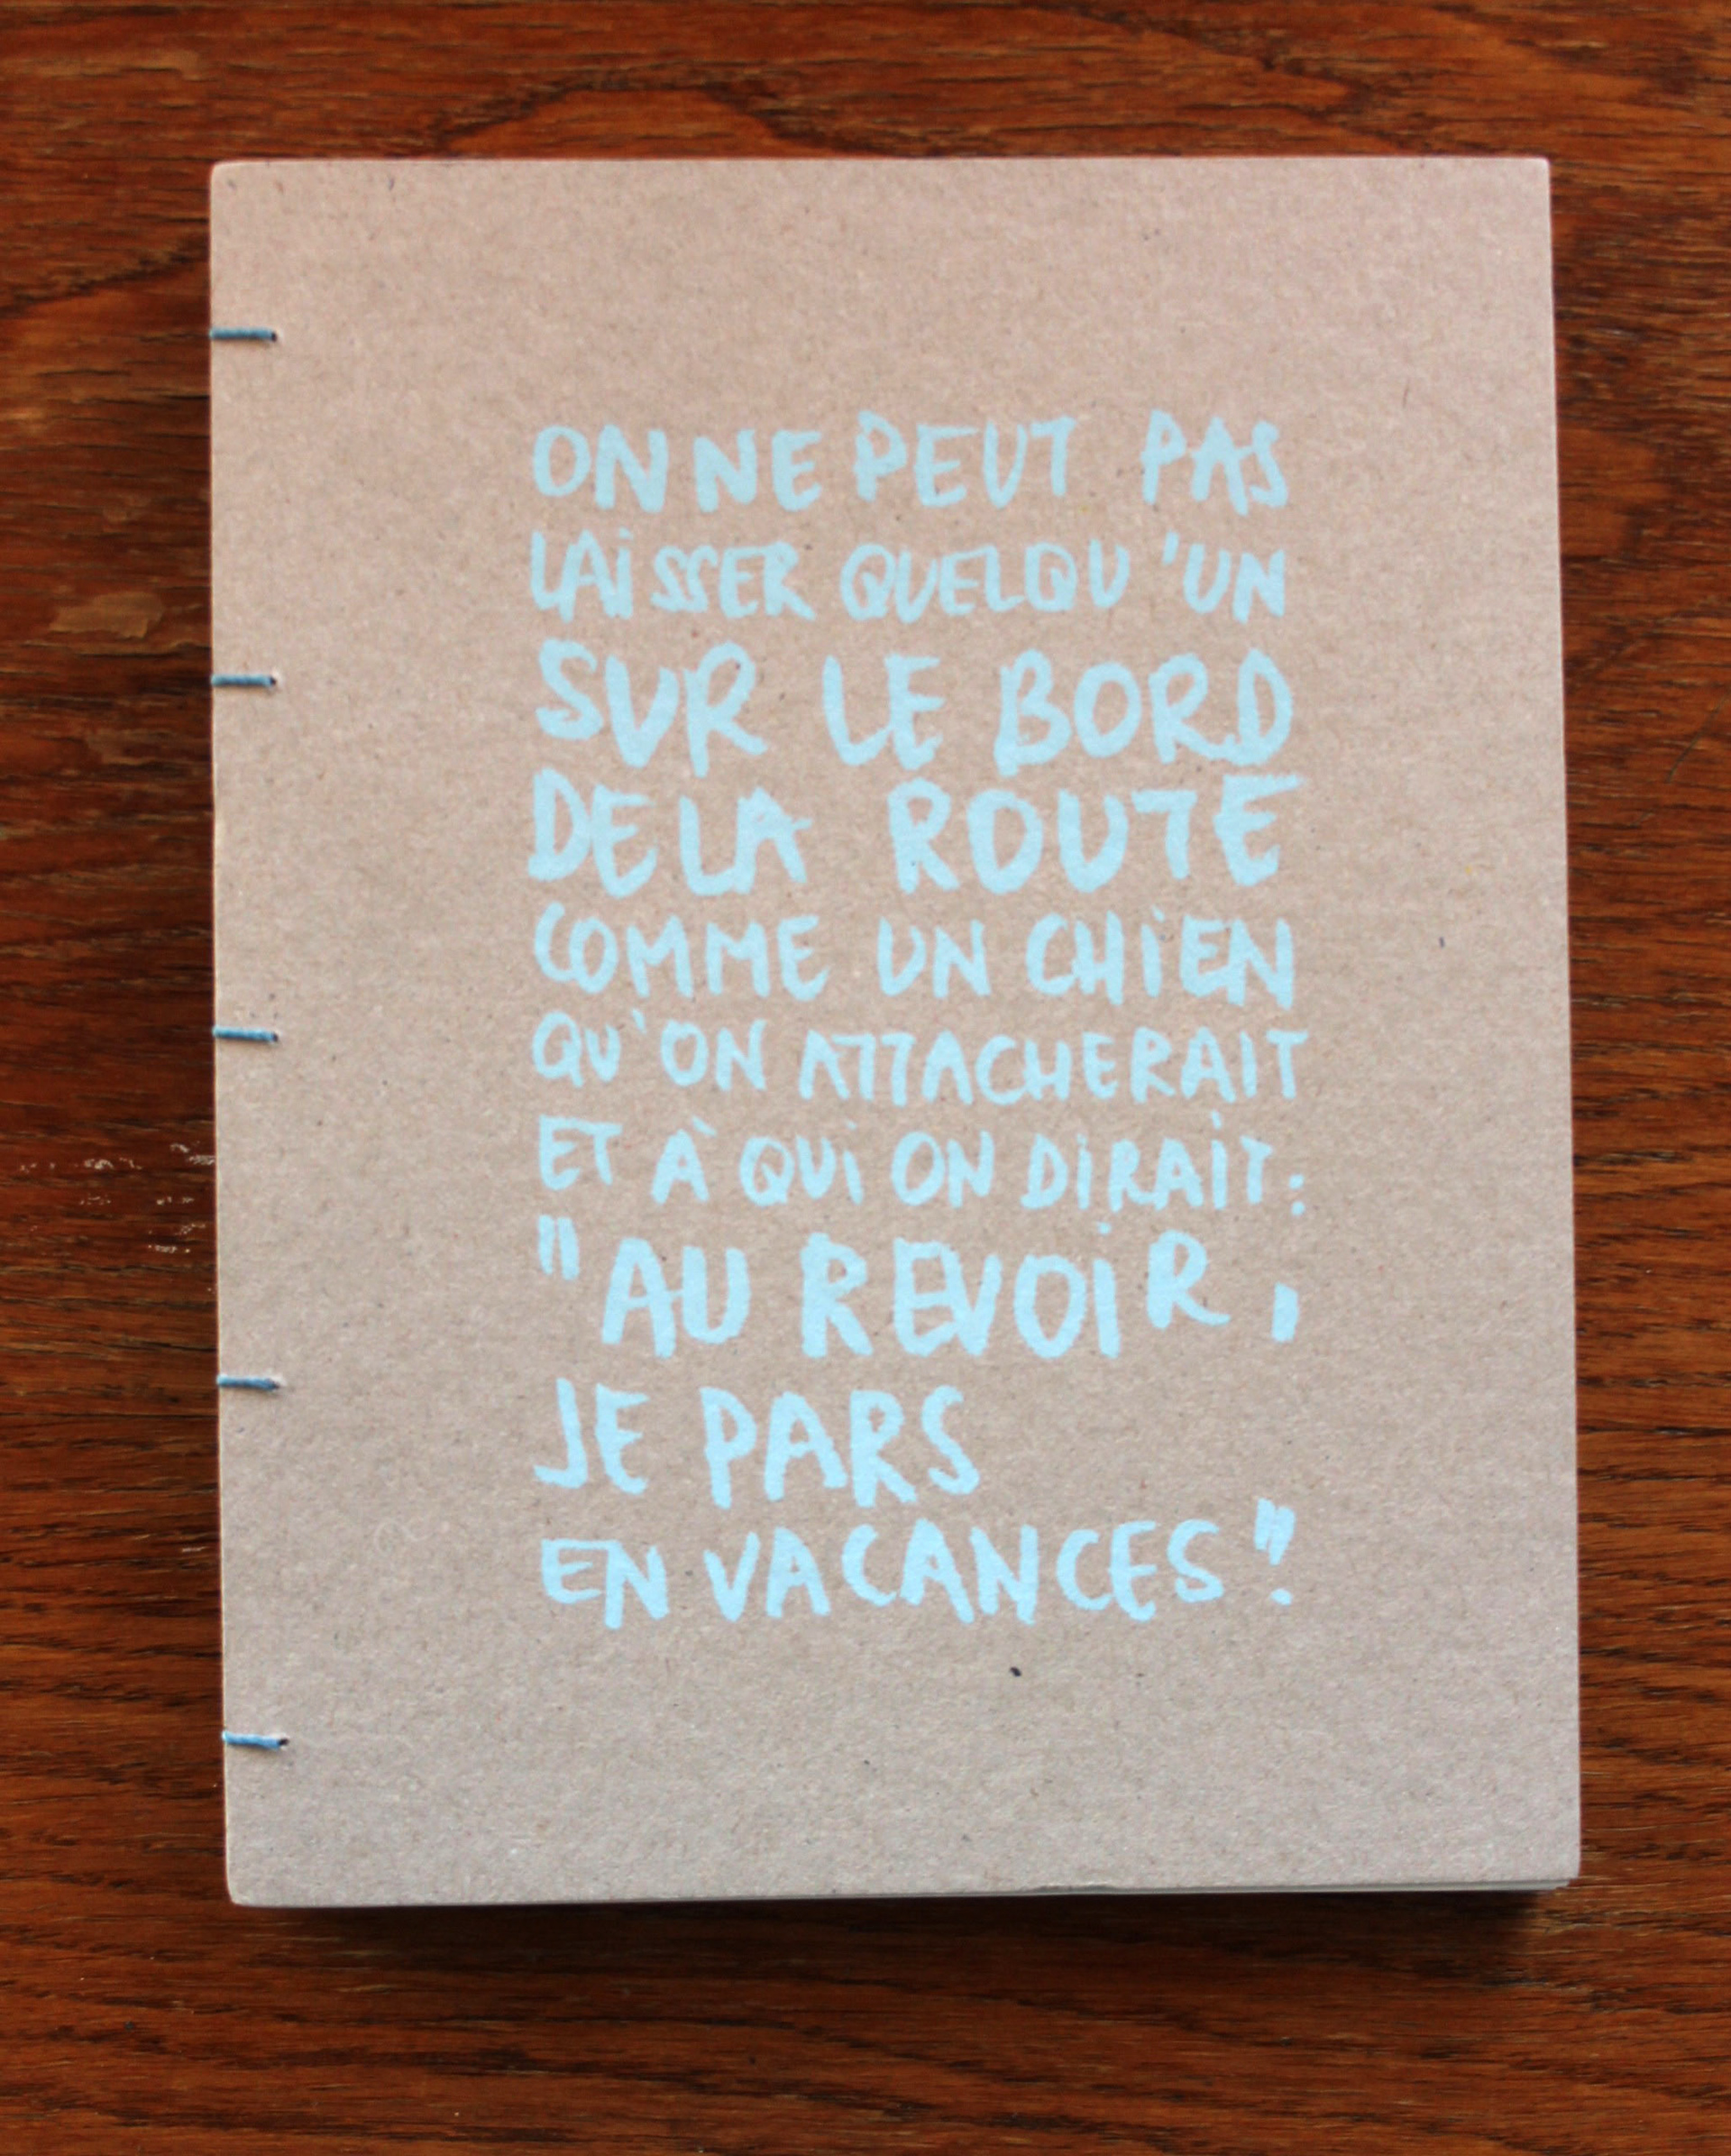 ON NE PEUT PAS
LAISSER QUELQU'UN
SUR LE BORD
DE LA ROUTE
COMME UN CHIEN
QU'ON ATTACHERAIT
ET À QUI ON DIRAIT:
"AU REVOIR,
JE PARS
EN VACANCES".